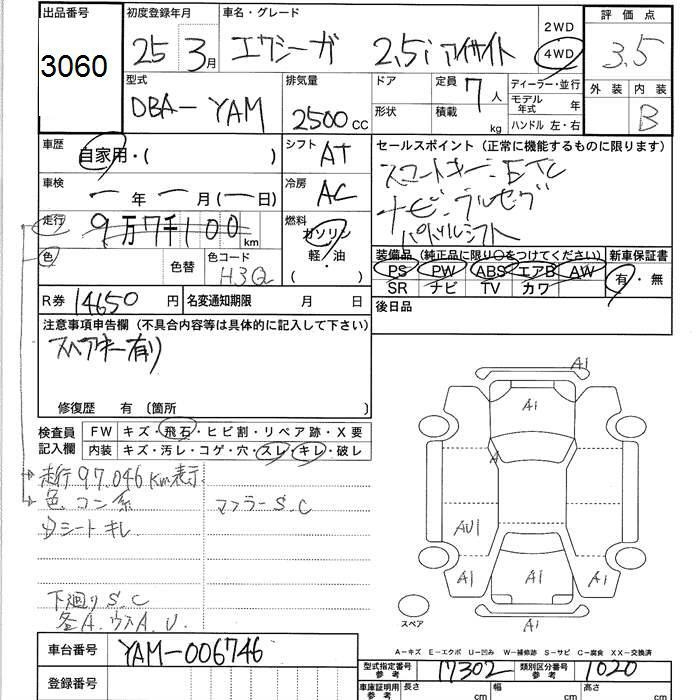 出品番号
3060
初度登録年月
25 3月
車名・グレード
エクシーガ 2.5i アイサイト
2WD
4WD
評価点
3.5
外装 内装
B
型式
DBA-YAM
排気量
2500cc
ドア
形状
定員 7人
積載 kg
ディーラー・並行
モデル年式 年
ハンドル 左・右
車歴
自家用・( )
シフト AT
車検
ー年ー月(ー日)
冷房 AC
走行
9万7千100km
燃料
ガソリン
軽・油
( )
色
色替
色コード
H3Q
R券 14650円
名変通知期限 月 日
セールスポイント(正常に機能するものに限ります)
スマートキー・ETC
ナビ・フルセグ
パドルシフト
装備品(純正品に限り○をつけてください)
PS PW ABS エアB AW
SR ナビ TV カワ
新車保証書
有・無
後日品
注意事項申告欄(不具合内容等は具体的に記入して下さい)
スペアキー有り
修復歴 有〔箇所 〕
検査員記入欄
FW キズ・飛石・ヒビ割・リペア跡・X要
内装 キズ・汚レ・コゲ・穴・スレ・キレ・破レ
走行97,046Km表示
色 コン系
マフラーS.C
シートキレ
下廻りS.C
各A.ウスA.U.
A1
A1
A1
AU1
A1
A1
A1
A1
スペア
A-キズ E-エクボ U-凹み W-補修跡 S-サビ C-腐食 XX-交換済
車台番号 YAM-006746
登録番号
型式指定番号 参考 17302
類別区分番号 参考 1020
車庫証明用 参考
長さ cm
幅 cm
高さ cm